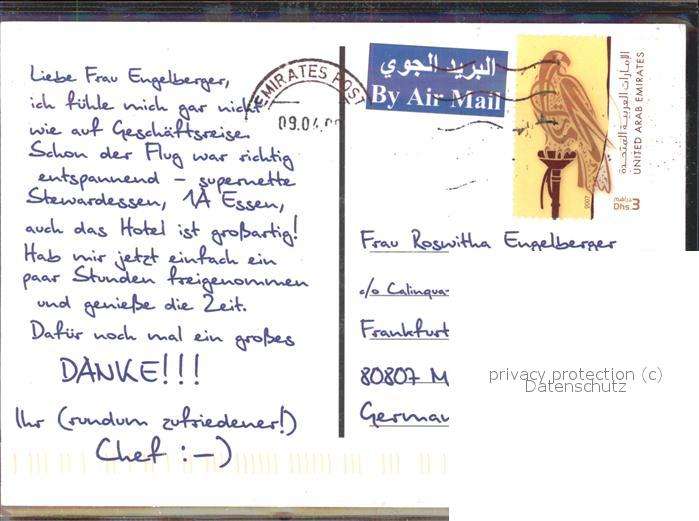 Liebe Frau Engelberger,
ich fühle mich gar nicht
wie auf Geschäftsreise.
Schon der Flug war richtig
entspannend – supernette
Stewardessen, 1A Essen,
auch das Hotel ist großartig!
Hab mir jetzt einfach ein
paar Stunden freigenommen
und genieße die Zeit.
Dafür noch mal ein großes
DANKE!!!
Ihr (rundum zufriedener!)
Chef :-)
EMIRATES POST
09.04.
البريد الجوي
By Air Mail
الإمارات العربية المتحدة
UNITED ARAB EMIRATES
2007
دراهم
Dhs.3
Frau Roswitha Engelberger
c/o Calinqua-
Frankfurt
80807 M
German
privacy protection (c)
Datenschutz